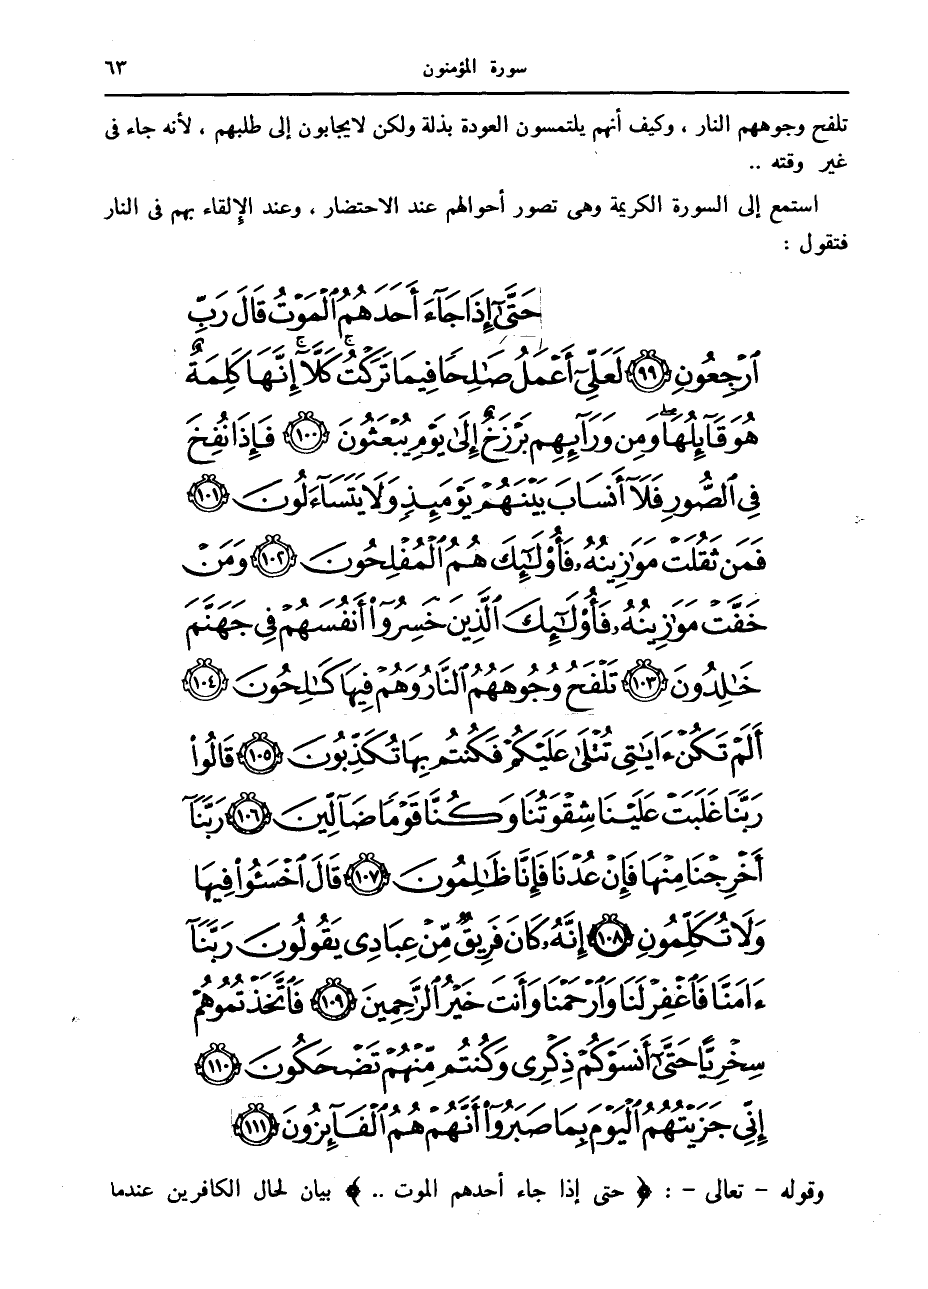 سورة المؤمنون ٦٣
تلفح وجوههم النار ، وكيف أنهم يلتمسون العودة بذلة ولكن لايجابون إلى طلبهم ، لأنه جاء فى
غير وقته ..
استمع إلى السورة الكريمة وهى تصور أحوالهم عند الاحتضار ، وعند الإلقاء بهم فى النار
فتقول :
حَتَّىٰٓ إِذَا جَآءَ أَحَدَهُمُ ٱلْمَوْتُ قَالَ رَبِّ
ٱرْجِعُونِ ٩٩ لَعَلِّىٓ أَعْمَلُ صَٰلِحًا فِيمَا تَرَكْتُ ۚ كَلَّآ ۚ إِنَّهَا كَلِمَةٌ
هُوَ قَآئِلُهَا ۖ وَمِن وَرَآئِهِم بَرْزَخٌ إِلَىٰ يَوْمِ يُبْعَثُونَ ١٠٠ فَإِذَا نُفِخَ
فِى ٱلصُّورِ فَلَآ أَنسَابَ بَيْنَهُمْ يَوْمَئِذٍ وَلَا يَتَسَآءَلُونَ ١٠١
فَمَن ثَقُلَتْ مَوَٰزِينُهُۥ فَأُو۟لَٰٓئِكَ هُمُ ٱلْمُفْلِحُونَ ١٠٢ وَمَنْ
خَفَّتْ مَوَٰزِينُهُۥ فَأُو۟لَٰٓئِكَ ٱلَّذِينَ خَسِرُوٓا۟ أَنفُسَهُمْ فِى جَهَنَّمَ
خَٰلِدُونَ ١٠٣ تَلْفَحُ وُجُوهَهُمُ ٱلنَّارُ وَهُمْ فِيهَا كَٰلِحُونَ ١٠٤
أَلَمْ تَكُنْ ءَايَٰتِى تُتْلَىٰ عَلَيْكُمْ فَكُنتُم بِهَا تُكَذِّبُونَ ١٠٥ قَالُوا۟
رَبَّنَا غَلَبَتْ عَلَيْنَا شِقْوَتُنَا وَكُنَّا قَوْمًا ضَآلِّينَ ١٠٦ رَبَّنَآ
أَخْرِجْنَا مِنْهَا فَإِنْ عُدْنَا فَإِنَّا ظَٰلِمُونَ ١٠٧ قَالَ ٱخْسَـُٔوا۟ فِيهَا
وَلَا تُكَلِّمُونِ ١٠٨ إِنَّهُۥ كَانَ فَرِيقٌ مِّنْ عِبَادِى يَقُولُونَ رَبَّنَآ
ءَامَنَّا فَٱغْفِرْ لَنَا وَٱرْحَمْنَا وَأَنتَ خَيْرُ ٱلرَّٰحِمِينَ ١٠٩ فَٱتَّخَذْتُمُوهُمْ
سِخْرِيًّا حَتَّىٰٓ أَنسَوْكُمْ ذِكْرِى وَكُنتُم مِّنْهُمْ تَضْحَكُونَ ١١٠
إِنِّى جَزَيْتُهُمُ ٱلْيَوْمَ بِمَا صَبَرُوٓا۟ أَنَّهُمْ هُمُ ٱلْفَآئِزُونَ ١١١
وقوله - تعالى - : ﴿ حتى إذا جاء أحدهم الموت .. ﴾ بيان لحال الكافرين عندما